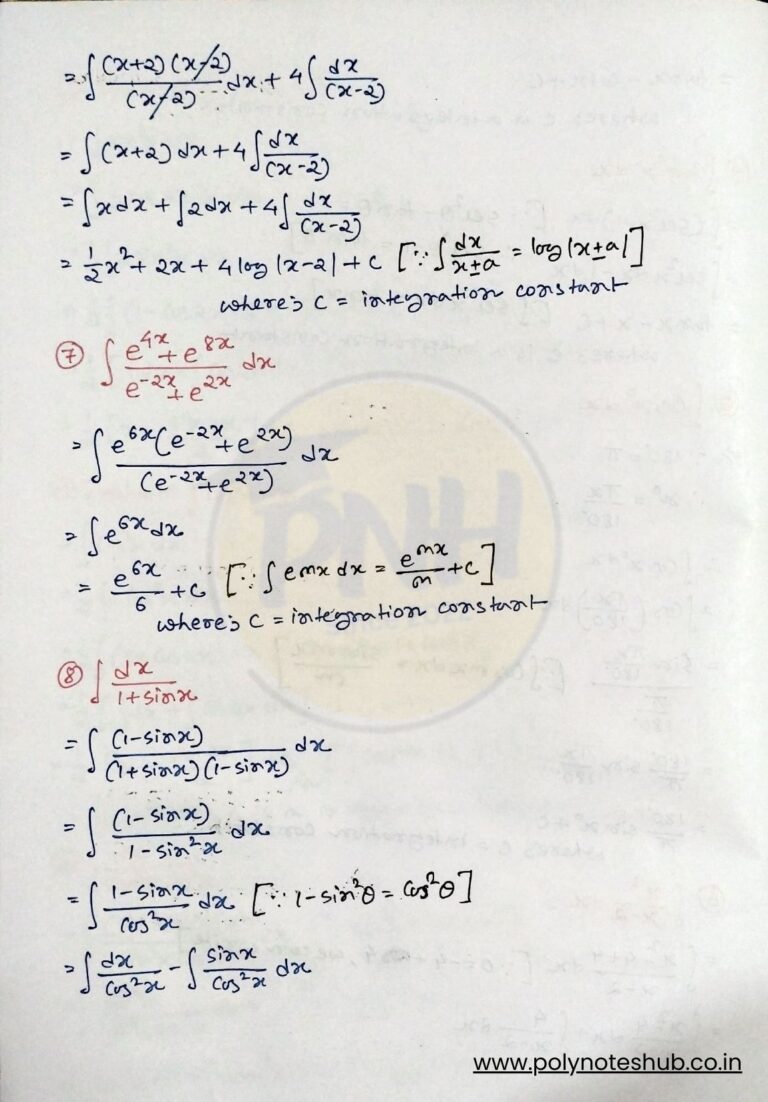 = ∫ (x+2)(x-2)/(x-2) dx + 4∫ dx/(x-2)
= ∫ (x+2) dx + 4∫ dx/(x-2)
= ∫ x dx + ∫ 2dx + 4∫ dx/(x-2)
= 1/2 x² + 2x + 4 log |x-2| + c [∵ ∫ dx/x±a = log |x±a|]
where; C = integration constant
⑦ ∫ e^4x + e^8x / e^-2x + e^2x dx
= ∫ e^6x (e^-2x + e^2x) / (e^-2x + e^2x) dx
= ∫ e^6x dx
= e^6x/6 + c [∵ ∫ emx dx = e^mx/m + c]
where; C = integration constant
PNH
⑧ ∫ dx/1+sinx
= ∫ (1-sinx)/(1+sinx)(1-sinx) dx
= ∫ (1-sinx)/1-sin²x dx
= ∫ 1-sinx/cos²x dx [∵ 1-sin²θ = cos²θ]
= ∫ dx/cos²x - ∫ sinx/cos²x dx
www.polynoteshub.co.in